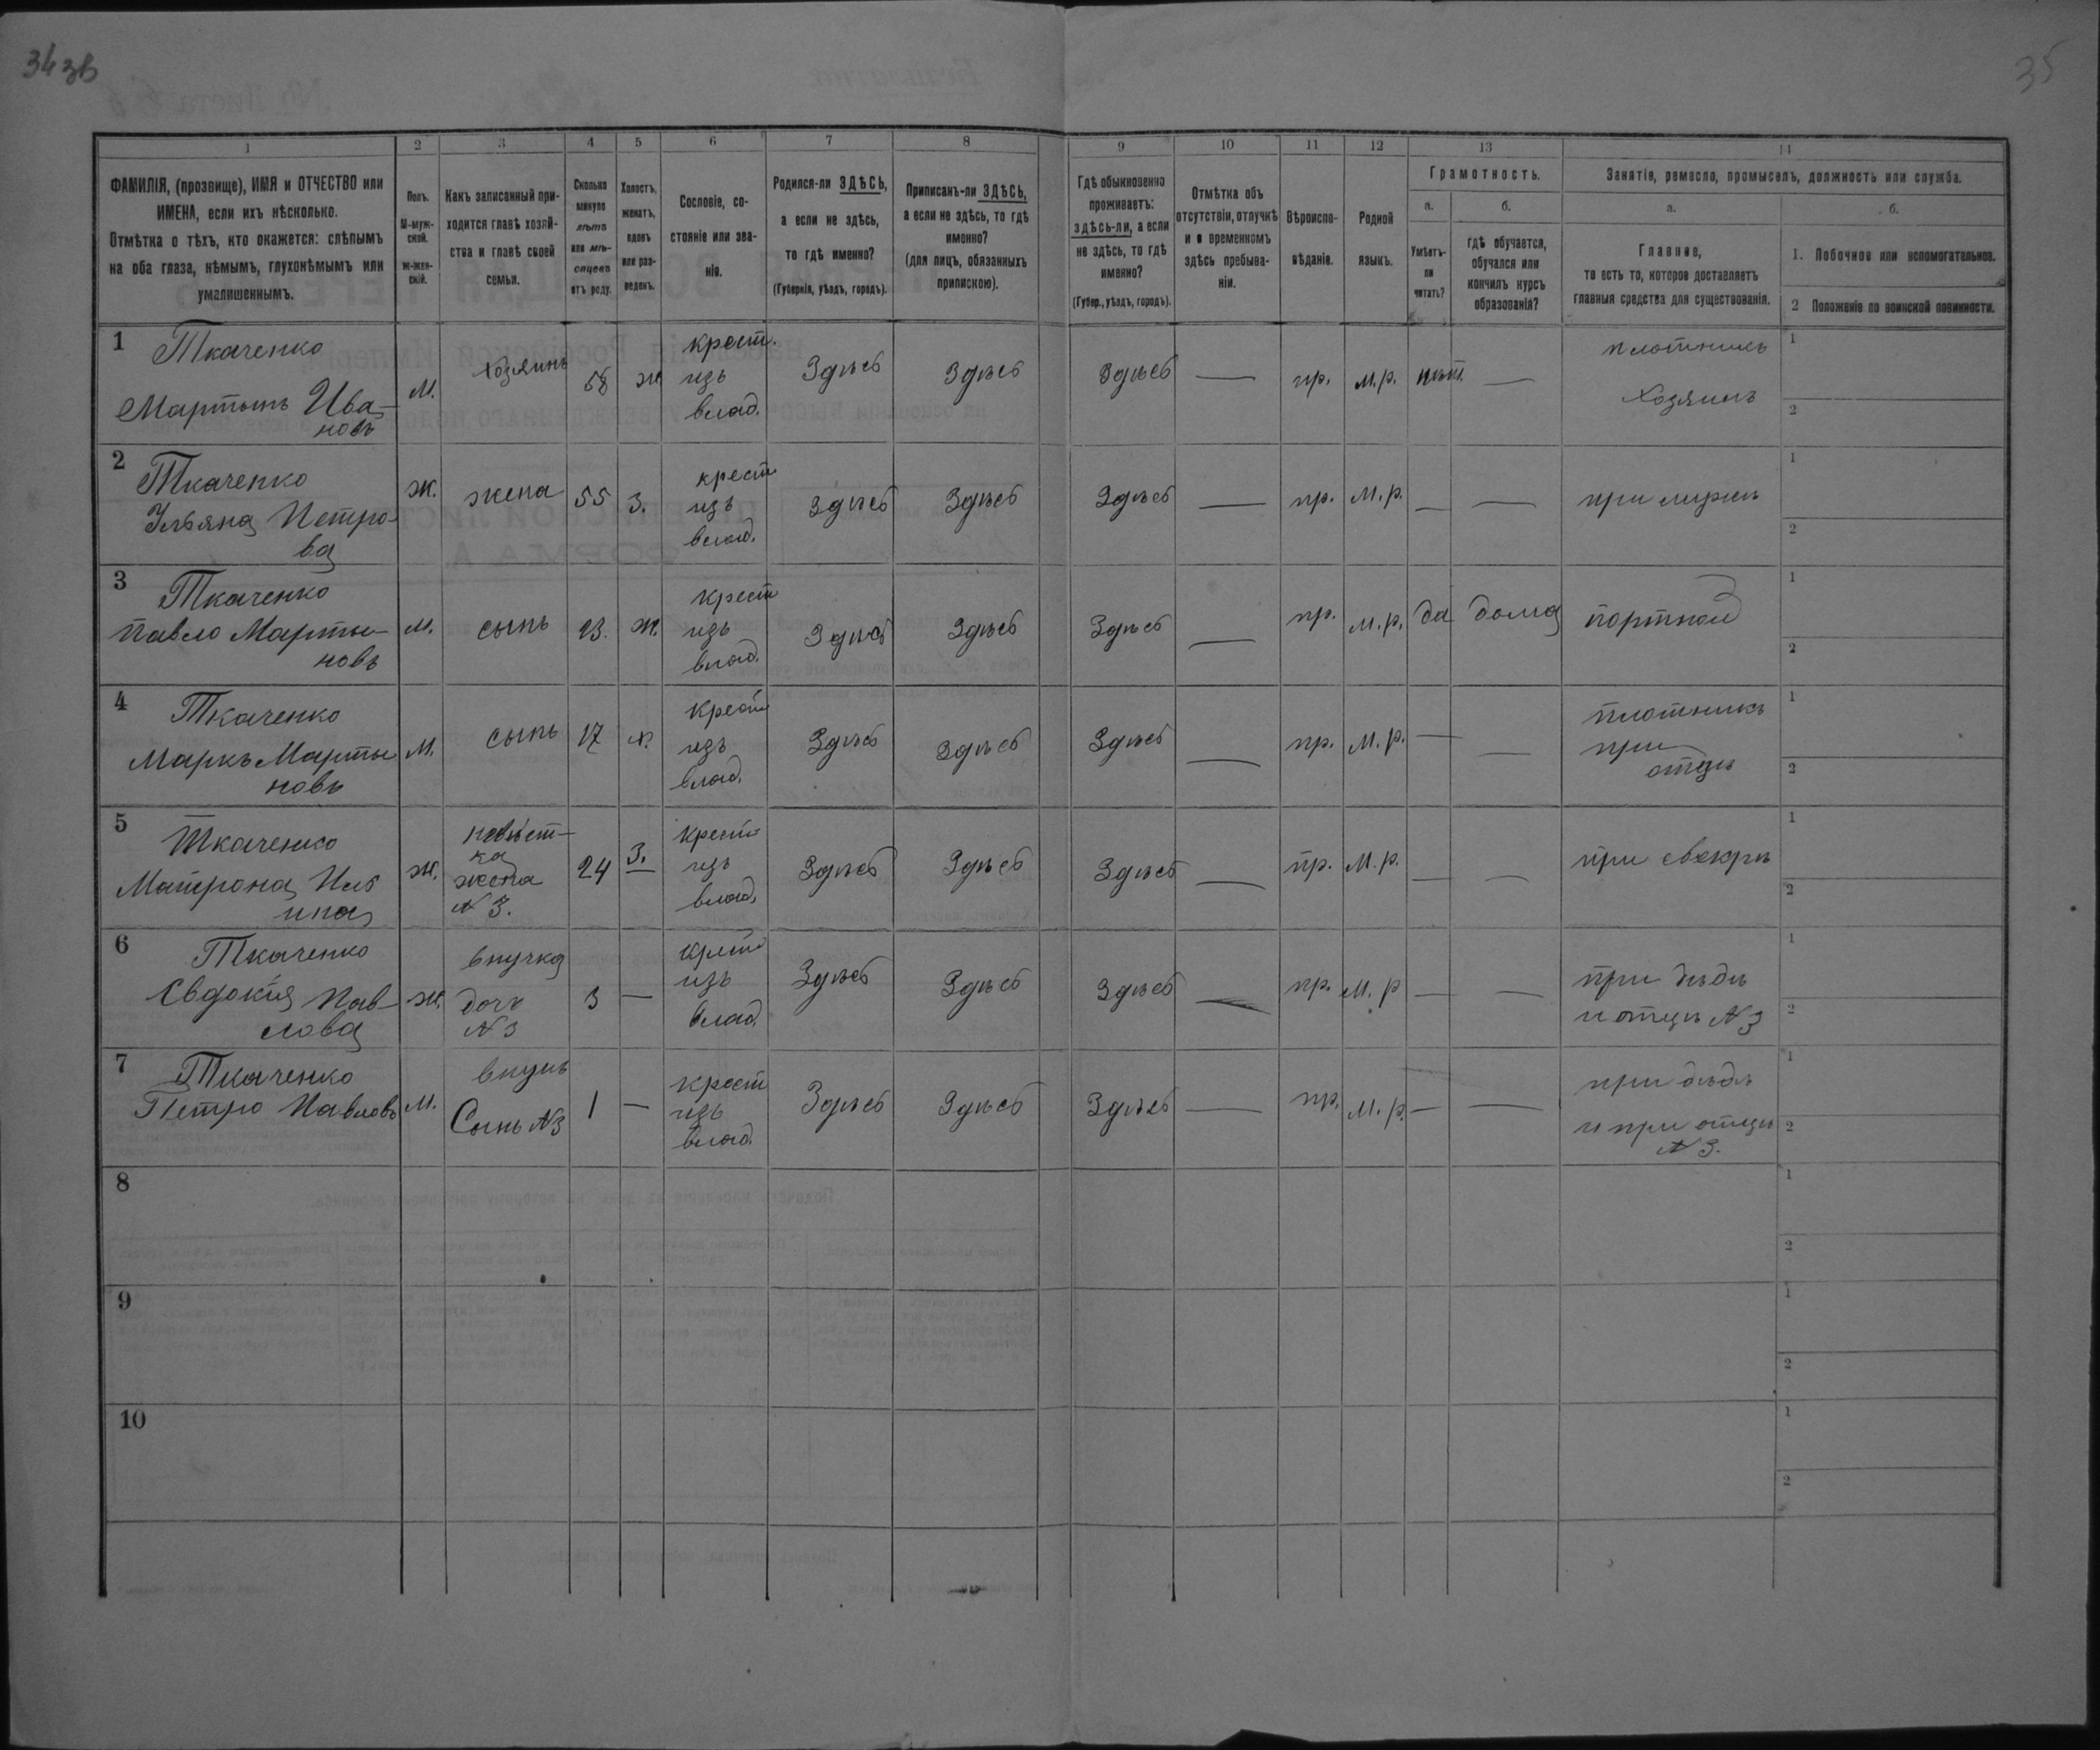 34 зв
35
1 2 3 4 5 6 7 8 9 10 11 12 13 14
ФАМИЛІЯ, (прозвище), ИМЯ и ОТЧЕСТВО или
ИМЕНА, если ихъ нѣсколько.
Отмѣтка о тѣхъ, кто окажется: слѣпымъ
на оба глаза, нѣмымъ, глухонѣмымъ или
умалишеннымъ.
Полъ.
М-муж-
ской.
Ж-жен-
скій.
Какъ записанный при-
ходится главѣ хозяй-
ства и главѣ своей
семьи.
Сколько
минуло
лѣтъ
или мѣ-
сяцевъ
отъ роду.
Холостъ,
женатъ,
вдовъ
или раз-
веденъ.
Сословіе, со-
стояніе или зва-
ніе.
Родился-ли ЗДѢСЬ,
а если не здѣсь,
то гдѣ именно?
(Губернія, уѣздъ, городъ).
Приписанъ-ли ЗДѢСЬ,
а если не здѣсь, то гдѣ
именно?
(для лицъ, обязанныхъ
припискою).
Гдѣ обыкновенно
проживаетъ:
здѣсь-ли, а если
не здѣсь, то гдѣ
именно?
(Губер., уѣздъ, городъ).
Отмѣтка объ
отсутствіи, отлучкѣ
и о временномъ
здѣсь пребыва-
ніи.
Вѣроиспо-
вѣданіе.
Родной
языкъ.
Грамотность.
а.
Умѣетъ-
ли
читать?
б.
гдѣ обучается,
обучался или
кончилъ курсъ
образованія?
Занятіе, ремесло, промыселъ, должность или служба.
а.
Главное,
то есть то, которое доставляетъ
главныя средства для существованія.
б.
1. Побочное или вспомогательное.
2 Положеніе по воинской повинности.
1 Ткаченко
Мартынъ Ива-
новъ
М.
хозяинъ
58
ж
крест.
изъ
влад.
Здѣсь
Здѣсь
Здѣсь
—
пр.
м.р.
нѣт.
—
плотникъ
Хозяинъ
1
2
2 Ткаченко
Ульяна Петро-
ва
ж.
жена
55
З.
крест
изъ
влад.
Здѣсь
Здѣсь
Здѣсь
—
пр.
м.р.
—
—
при
1
2
3 Ткаченко
Павло Марты-
новъ
м.
сынъ
23.
ж.
крест
изъ
влад.
Здѣсь
Здѣсь
Здѣсь
—
пр.
м.р.
да
дома
портной
1
2
4 Ткаченко
Маркъ Марты
новъ
М.
сынъ
17
х.
крест
изъ
влад.
Здѣсь
Здѣсь
Здѣсь
—
пр.
М.р.
—
—
плотникъ
при
отцѣ
1
2
5 Ткаченко
Матрона
ж.
невѣст-
ка
жена
N 3.
24
З.
крест
изъ
влад.
Здѣсь
Здѣсь
Здѣсь
—
пр.
М.р.
—
—
при свекрѣ
1
2
6 Ткаченко
Євдокія Пав-
лова
ж.
внучка
дочь
N 3
3
—
крест
изъ
влад.
Здѣсь
Здѣсь
Здѣсь
—
пр.
М.р
—
—
при дѣдѣ
и отцѣ N 3
1
2
7 Ткаченко
Петро Павловъ
М.
внукъ
Сынъ N3
1
—
крест
изъ
влад.
Здѣсь
Здѣсь
Здѣсь
—
пр.
м.р.
—
—
при дѣдѣ
и при отцѣ
N 3.
1
2
8
1
2
9
1
2
10
1
2